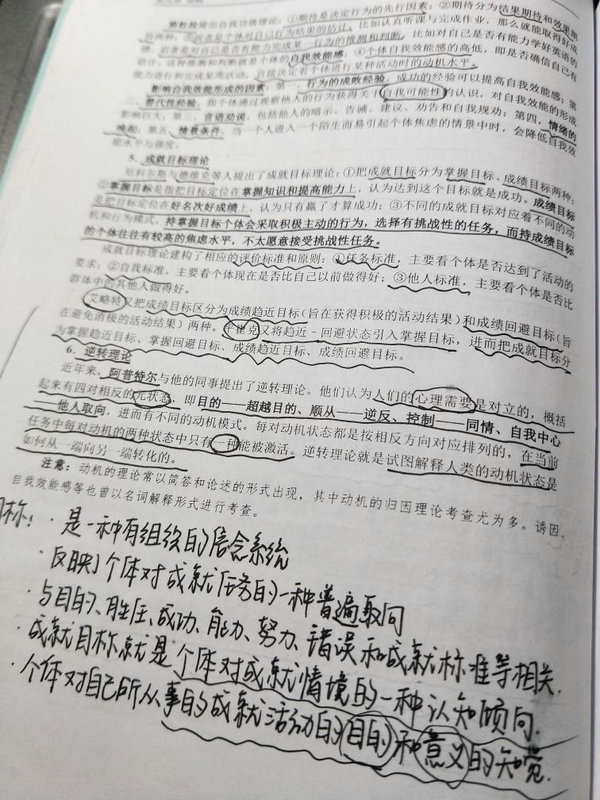 班杜拉提出自我功效理论：①期待是决定行为的先行因素；②期待分为结果期待和效果期
待两种；③
个体对自己是否有能力学好英语的
估计，这种推测和判断就是个体的自我效能感；④个体自我效能感的高低，即是否确信自己有
能力进行和完成某项活动，直接决定者个体进行某种活动时的动机水平。
影响自我效能形成的因素：第一，行为的成败经验，成功的经验可以提高自我效能感；第
二，替代性经验，指个体通过观察他人的行为获得关于自我可能性的认识，对自我效能的形成
影响巨大；第三，言语劝说，包括他人的暗示、告诫、建议、劝告和自我规劝；第四，情绪的
唤起；第五，情景条件，当一个人进入一个陌生而易引起个体焦虑的情景中时，会降低自我效
能水平与强度。
5. 成就目标理论
尼科尔斯与德维克等人提出了成就目标理论：①把成就目标分为掌握目标、成绩目标两种；
②掌握目标是指把目标定位在掌握知识和提高能力上，认为达到这个目标就是成功。成绩目标
是把目标定位在好名次好成绩上，认为只有赢了才算成功；③不同的成就目标对应着不同的动
机和行为模式，持掌握目标个体会采取积极主动的行为，选择有挑战性的任务，而持成绩目标
的个体往往有较高的焦虑水平，不太愿意接受挑战性任务。
成就目标理论建构了相应的评价标准和原则：①任务标准，主要看个体是否达到了活动的
要求；②自我标准，主要看个体现在是否比自己以前做得好；③他人标准，主要看个体是否比
群体中的其他人做得好。
艾略特又把成绩目标区分为成绩趋近目标（旨在获得积极的活动结果）和成绩回避目标（旨
在避免消极的活动结果）两种。平崔克又将趋近－回避状态引入掌握目标，进而把成就目标分
为掌握趋近目标、掌握回避目标、成绩趋近目标、成绩回避目标。
6. 逆转理论
近年来，阿普特尔与他的同事提出了逆转理论。他们认为人们的心理需要是对立的，概括
起来有四对相反的元状态，即目的——超越目的、顺从——逆反、控制——同情、自我中心
——他人取向，进而有不同的动机模式。每对动机状态都是按相反方向对应排列的，在当前
任务中每对动机的两种状态中只有一种能被激活。逆转理论就是试图解释人类的动机状态是
如何从一端向另一端转化的。
注意：动机的理论常以简答和论述的形式出现，其中动机的归因理论考查尤为多。诱因、
自我效能感等也曾以名词解释形式进行考查。
目标：· 是一种有组织的信念系统
· 反映了个体对成就任务的一种普遍取向
· 与目的、胜任、成功、能力、努力、错误和成就标准等相关.
· 成就目标就是个体对成就情境的一种认知倾向.
· 个体对自己所从事的成就活动的目的和意义的知觉.